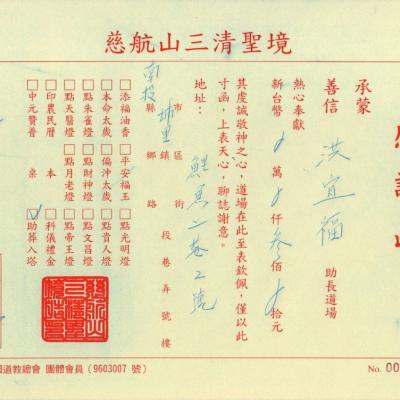 慈航山三清聖境
承蒙
善信 洪宜福 助長道場
熱心奉獻
新台幣 萬 仟 叁佰 拾元
其虔誠敬神之心,道場在此至表欽佩,僅以此
寸函,上表天心,聊誌謝意。
地址:南投縣市 埔里鄉鎮區 鯉魚路街 二巷2號
段巷弄號樓
□添福油香 □平安福玉 □點光明燈
□本命太歲 □偏沖太歲 □點貴人燈
□點朱雀燈 □點財神燈 □點文昌燈
□點天醫燈 □點月老燈 □點帝王燈
□印農民曆 本 □科儀禮金
□中元贊普 桌 ☑助葬八塔
道教總會 團體會員(9603007 號)
No. 00